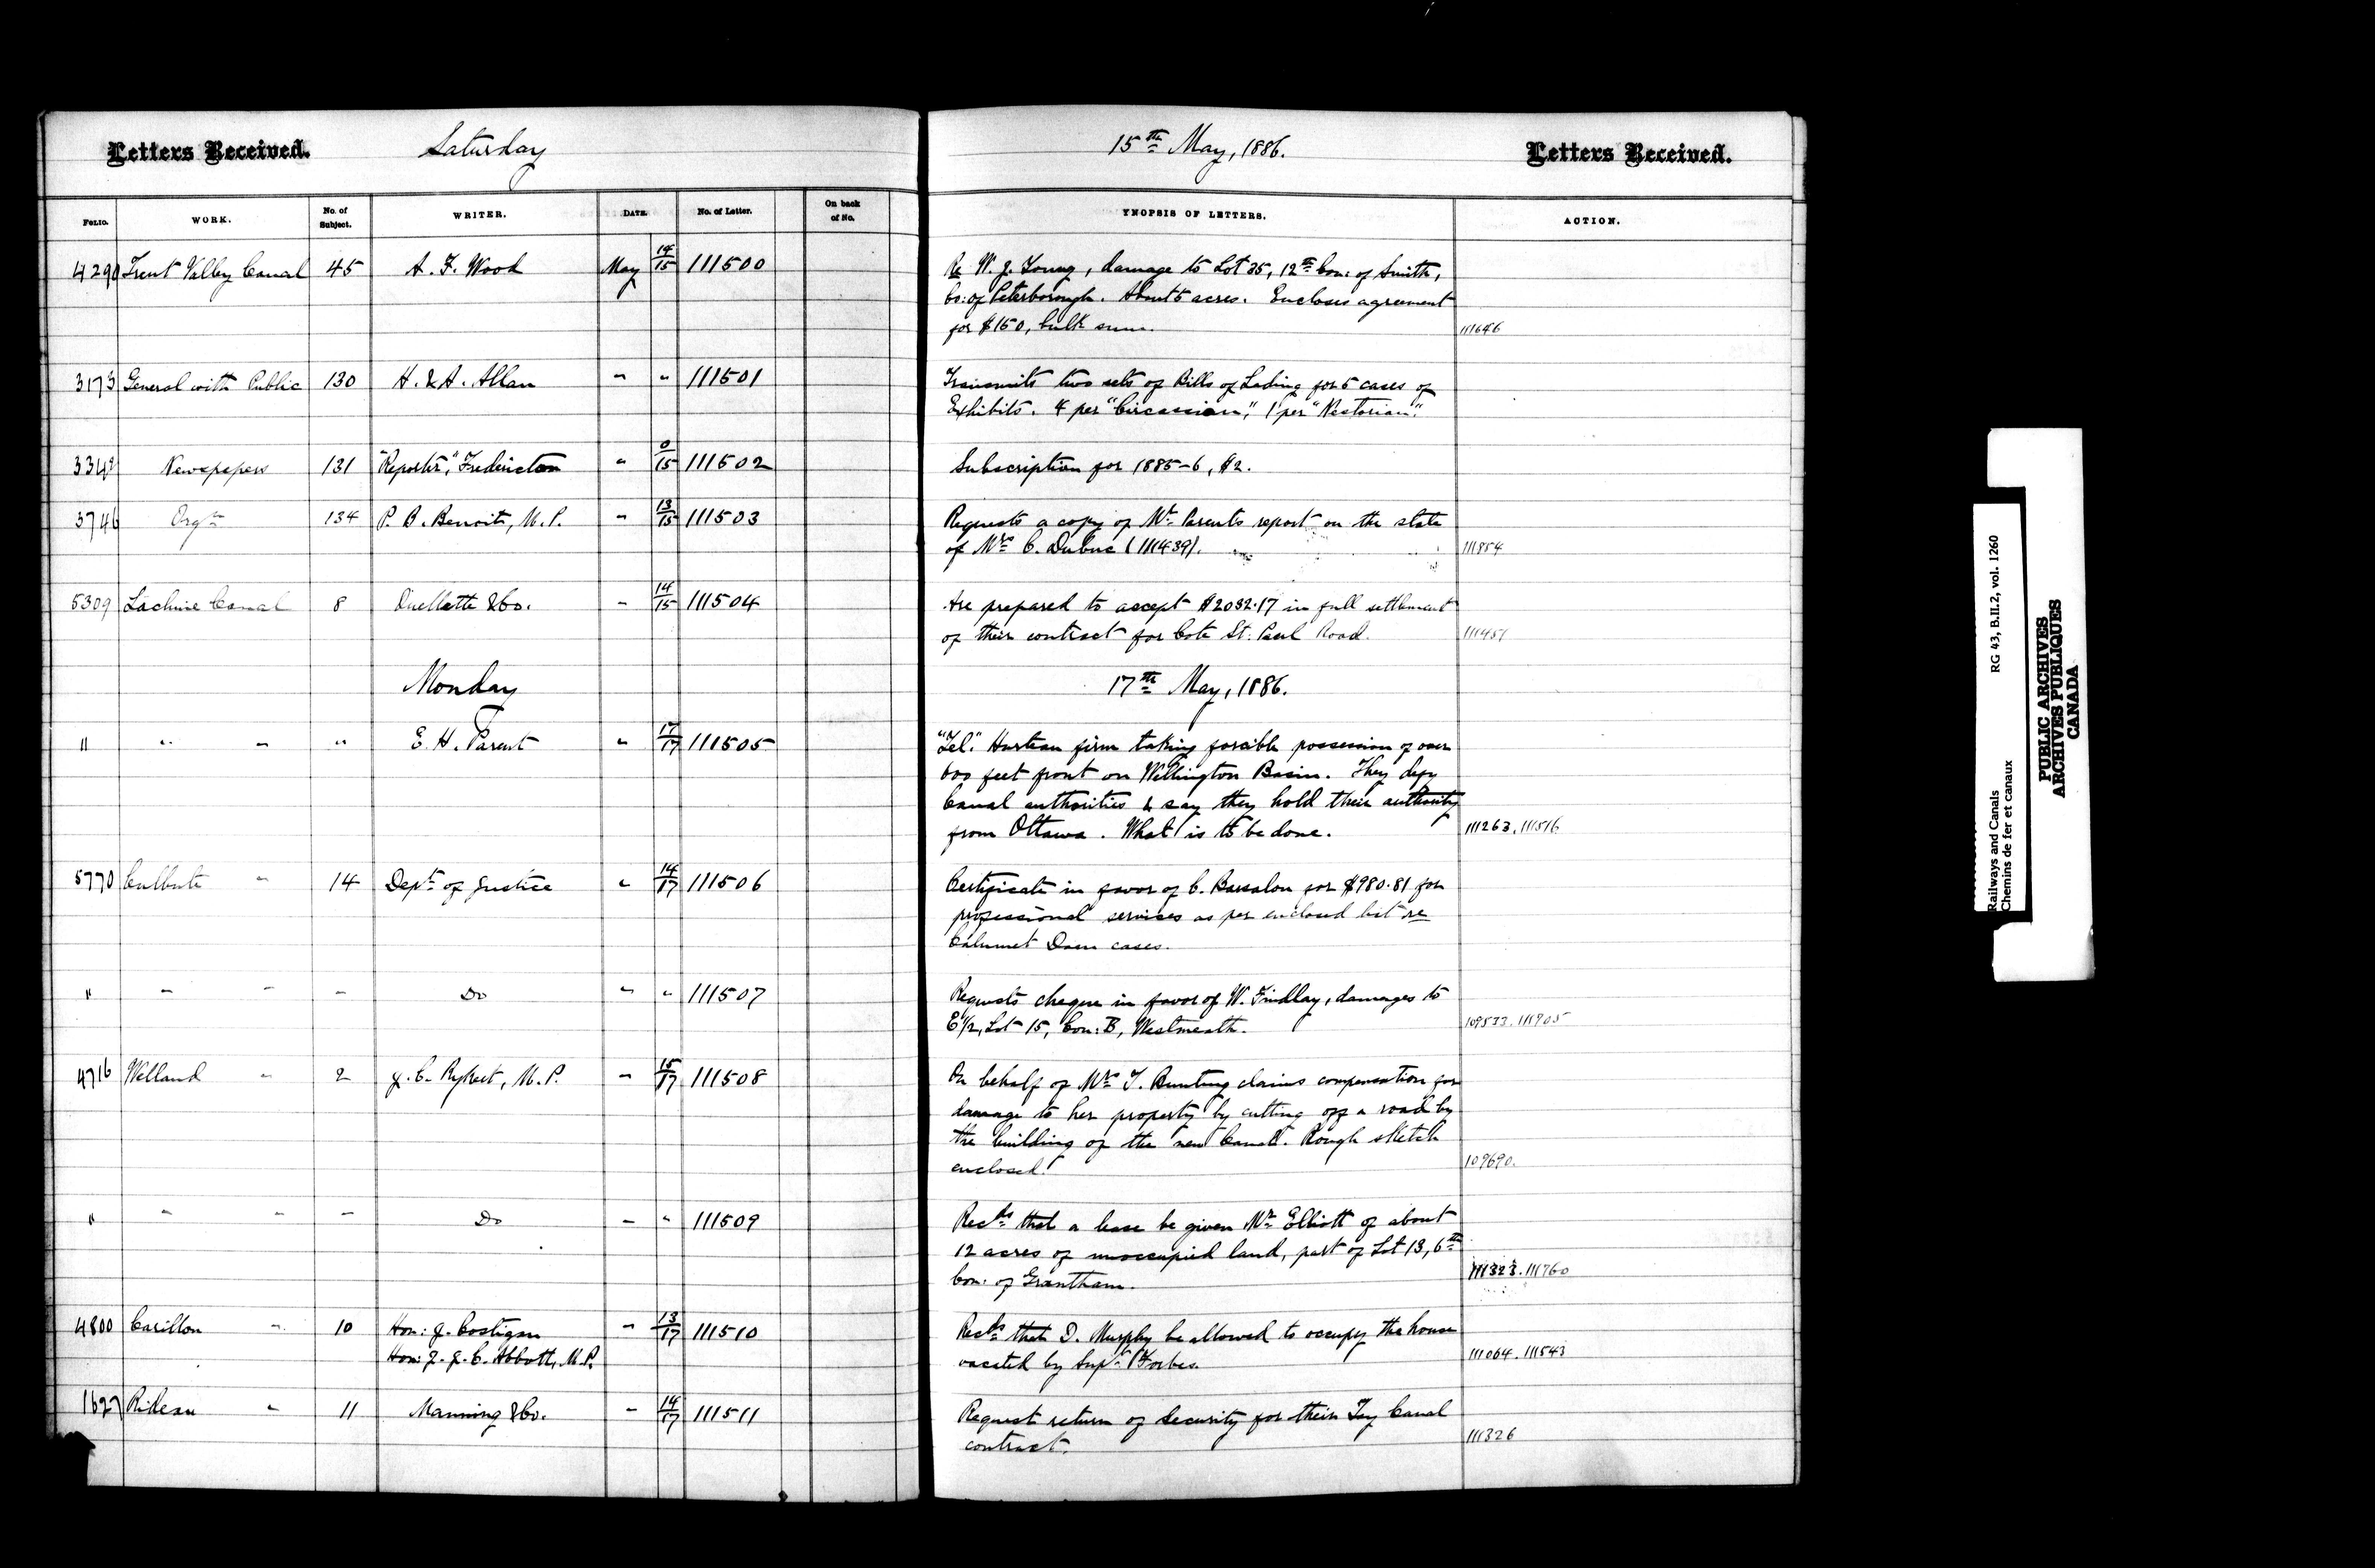 Letters Received.
Saturday
15th May, 1886.
Letters Received.
FOLIO. WORK. No. of Subject. WRITER. DATE. No. of Letter. On back of No. YNOPSIS OF LETTERS. ACTION.
4290 Trent Valley Canal 45 A. F. Wood May 14/15 111500 Re W. J. Young, damage to Lot 35, 12th Con: of Smith,
Co: of Peterborough. About 5 acres. Encloses agreement
for $150, bulk sum. 111646
3173 General with Public 130 H. & A. Allan " " 111501 Transmits two sets of Bills of Lading for 5 cases of
Exhibits. 4 per "Circassian," 1 per "Nestorian".
3348 Newspapers 131 "Reporter," Fredericton " 0/15 111502 Subscription for 1885-6, $2.
3746 Orgn 134 P. B. Benoit, M.P. " 13/15 111503 Requests a copy of Mr Parent's report on the slate
of Mrs C. Dubuc (111439). 111854
5309 Lachine Canal 8 Ouellette & Co. " 14/15 111504 Are prepared to accept $2032.17 in full settlement
of their contract for Cote St. Paul Road. 111451
Monday 17th May, 1886.
" " " " E. H. Parent " 17/17 111505 "Tel." Harteau firm taking forcible possession of over
600 feet front on Wellington Basin. They defy
Canal authorities & say they hold their authority
from Ottawa. What is to be done. 111263. 111516
5770 Culbute " 14 Dept of Justice " 14/17 111506 Certificate in favor of C. Barsalou for $980.81 for
professional services as per enclosed list re
Calumet Dam cases.
" " " " Do " " 111507 Requests cheque in favor of W. Findlay, damages to
E 1/2, Lot 15, Con: B, Westmeath. 109533. 111905
4716 Welland " 2 J. C. Rykert, M.P. " 15/17 111508 On behalf of Mrs T. Bunting claims compensation for
damage to her property by cutting off a road by
the building of the new Canal. Rough sketch
enclosed. 109690.
" " " " Do " " 111509 Recds that a lease be given Mr Elliott of about
12 acres of unoccupied land, part of Lot 13, 6th
Con: of Grantham. 111323. 111760
4800 Carillon " 10 Hon: J. Costigan " 13/17 111510 Recds that D. Murphy be allowed to occupy the house
Hon: J. J. C. Abbott, M.P. vacated by Supt Forbes. 111064. 111543
1627 Rideau " 11 Manning & Co. " 14/17 111511 Request return of security for their Tay Canal
contract. 111326
Railways and Canals RG 43, B.II.2, vol. 1260
Chemins de fer et canaux
PUBLIC ARCHIVES
ARCHIVES PUBLIQUES
CANADA